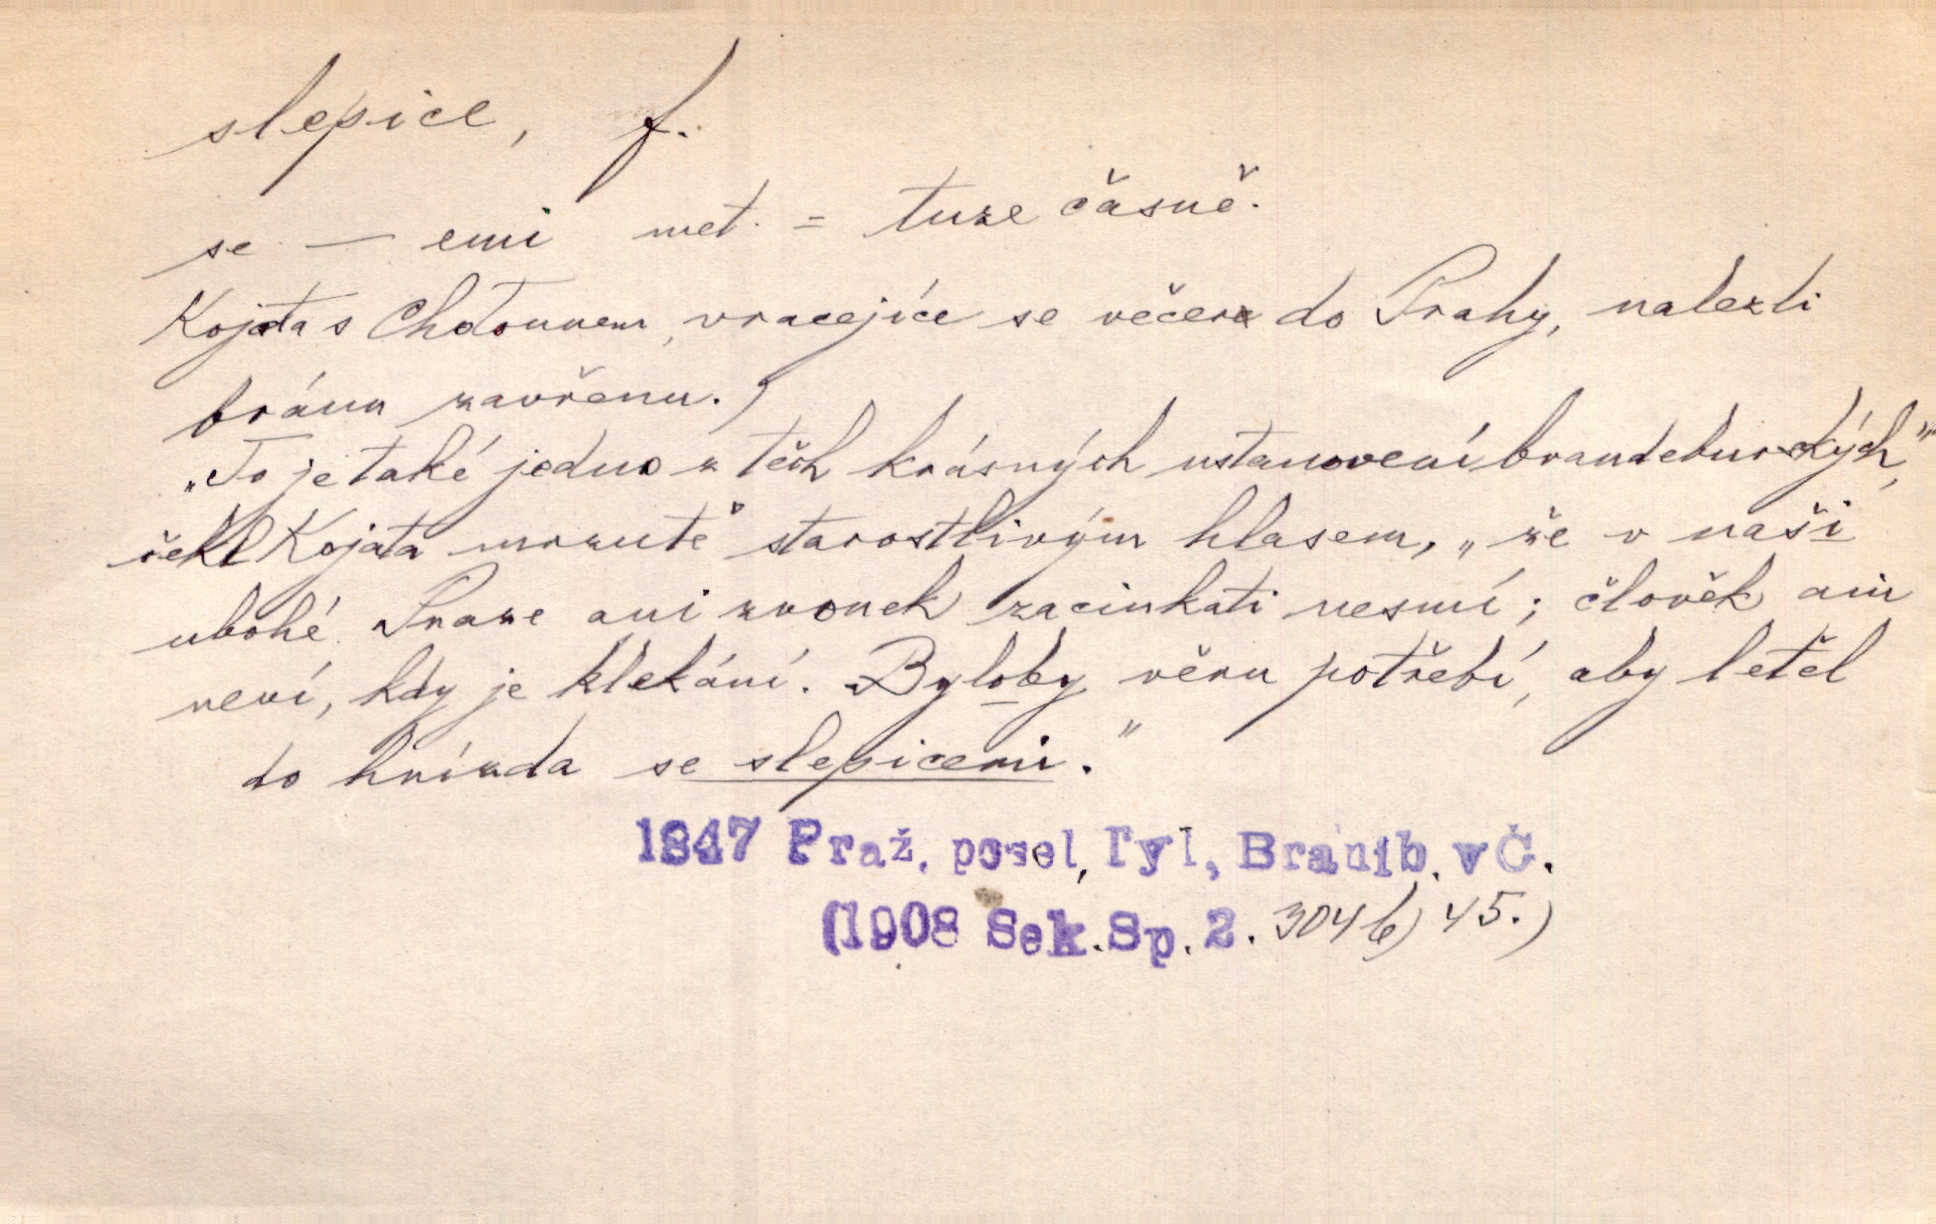 slepice, f.
se — emi met. = tuze časně.
Kojata s Chotounem, vracejíce se večer do Prahy, nalezli
bránu zavřenu.)
„To je také jedno z těch krásných ustanovení brandeburských,“
řekl Kojata mrzutě starostlivým hlasem, „že v naší
ubohé Praze ani zvonek zacinkati nesmí; člověk ani
neví, kdy je klekání. Byloby věru potřebí, aby letěl
do hnízda se slepicemi.“
1847 Praž. posel, Tyl, Branib. v Č.
(1908 Sek. Sp. 2. 304 b) 45.)